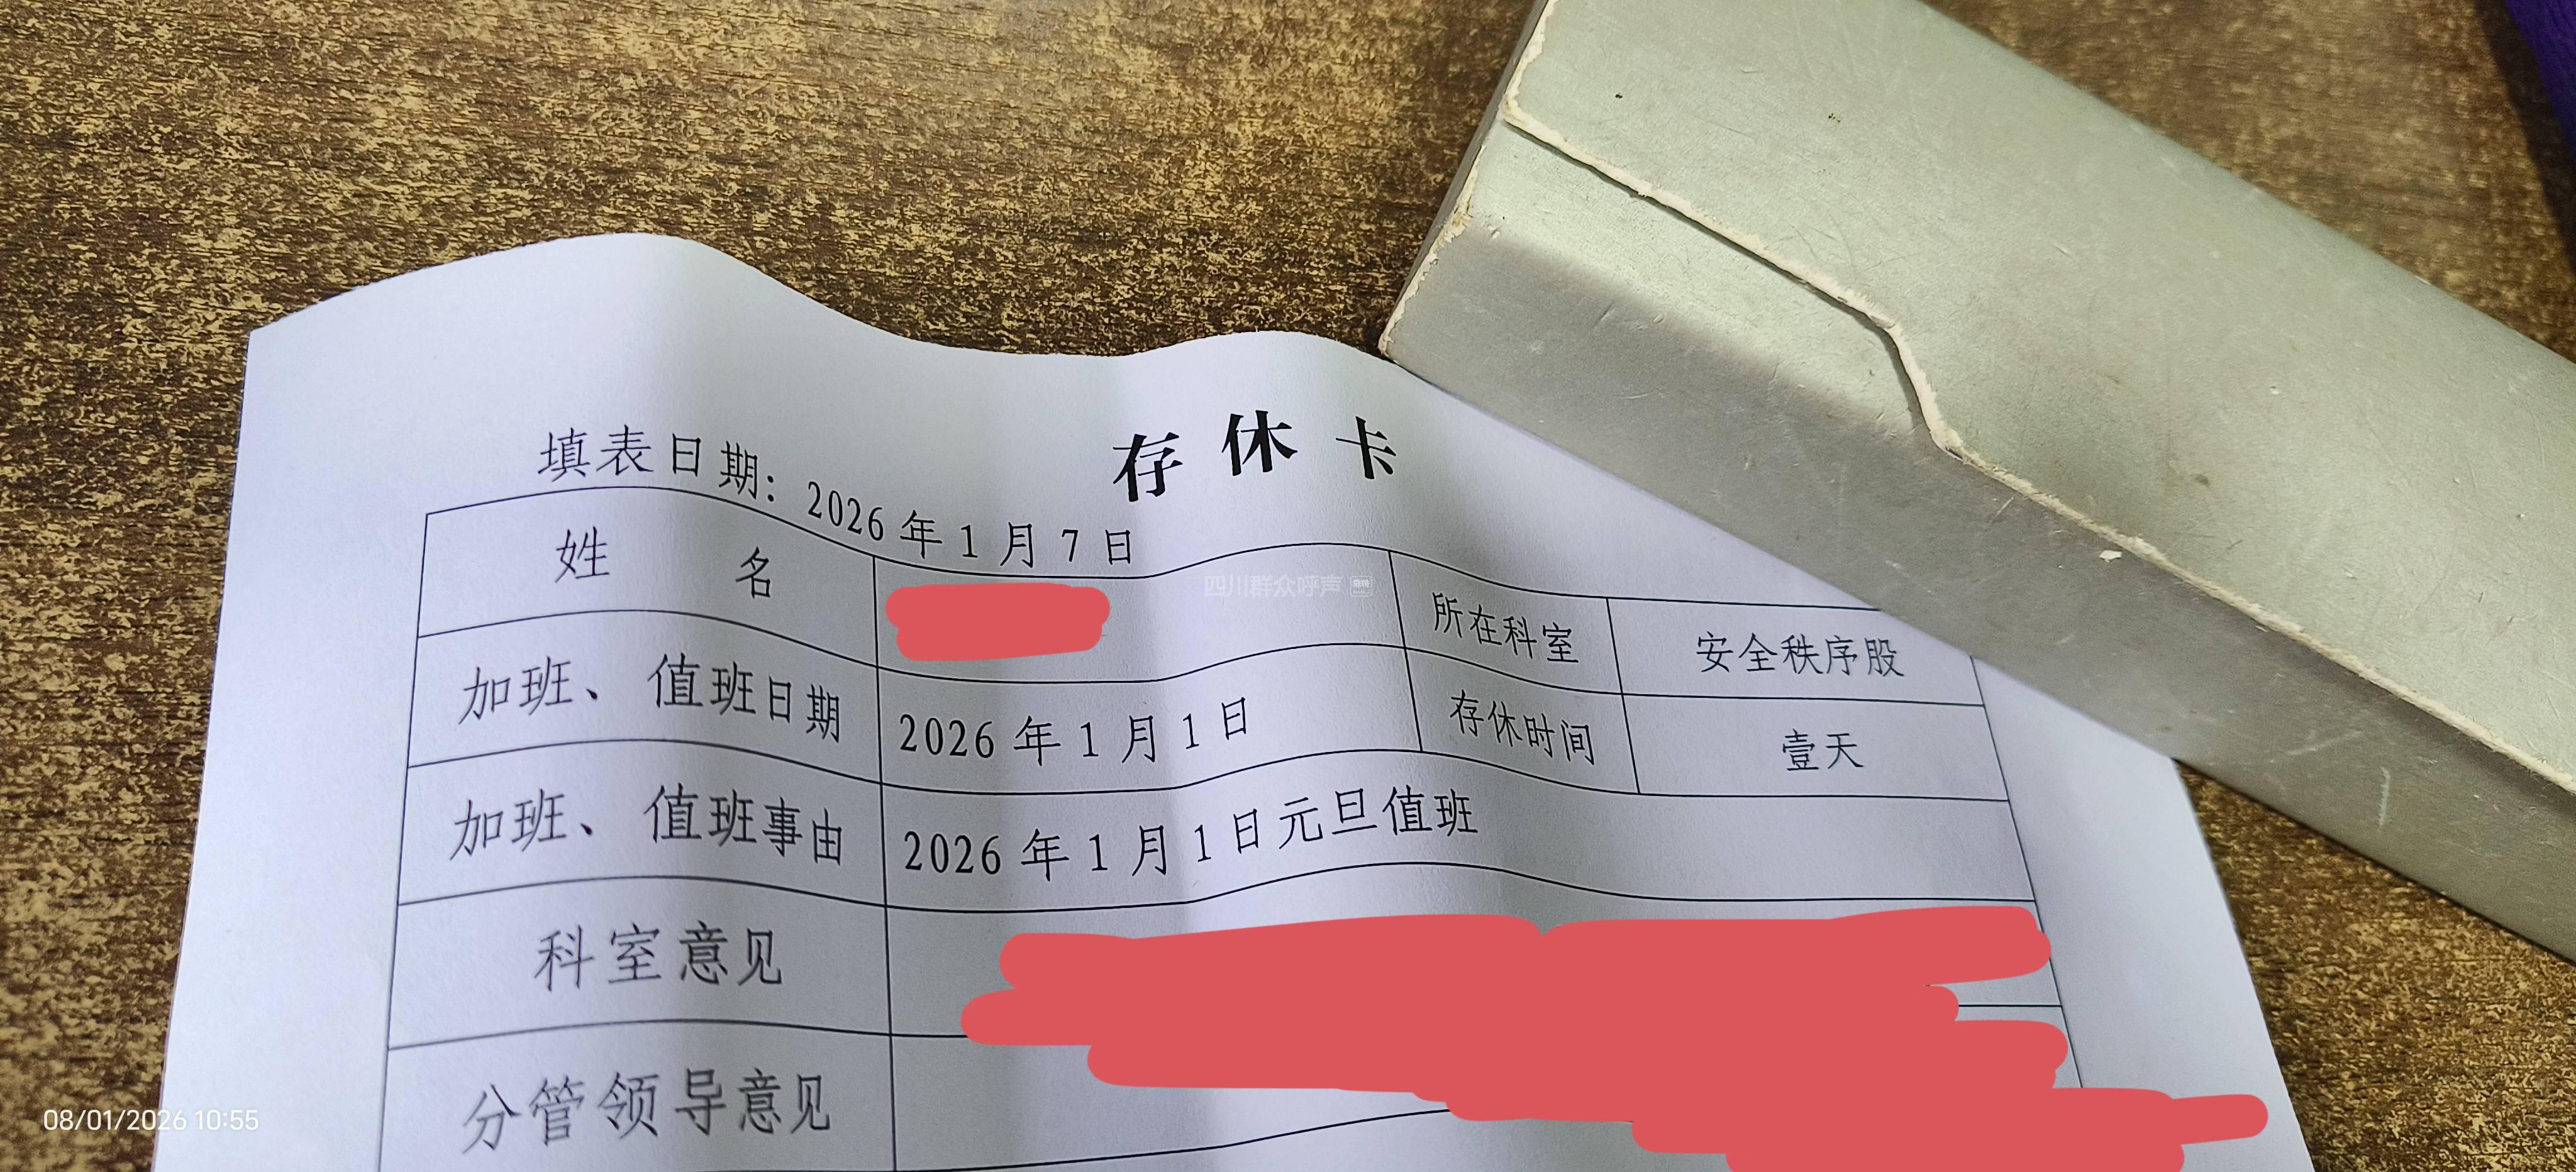 存休卡
填表日期：2026年1月7日
姓名
所在科室 安全秩序股
加班、值班日期 2026年1月1日 存休时间 壹天
加班、值班事由 2026年1月1日元旦值班
科室意见
分管领导意见
四川群众呼声
08/01/2026 10:55